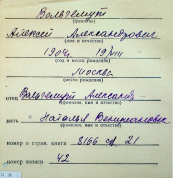 Вольгемут
(фамилия)
Алексей Александрович
(имя и отчество)
1904, 19/VIII
(год и число рождения)
Москва
(место рождения)
отец Вольгемут Александр -
(фамилия, имя и отчество)
мать " Наталья Вениаминовна
(фамилия, имя и отчество)
номер и стран. книги 8166 стр. 21
номер записи 42